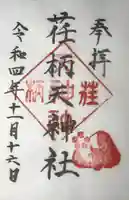 奉拝
荏柄天神社
令和四年十二月十六日